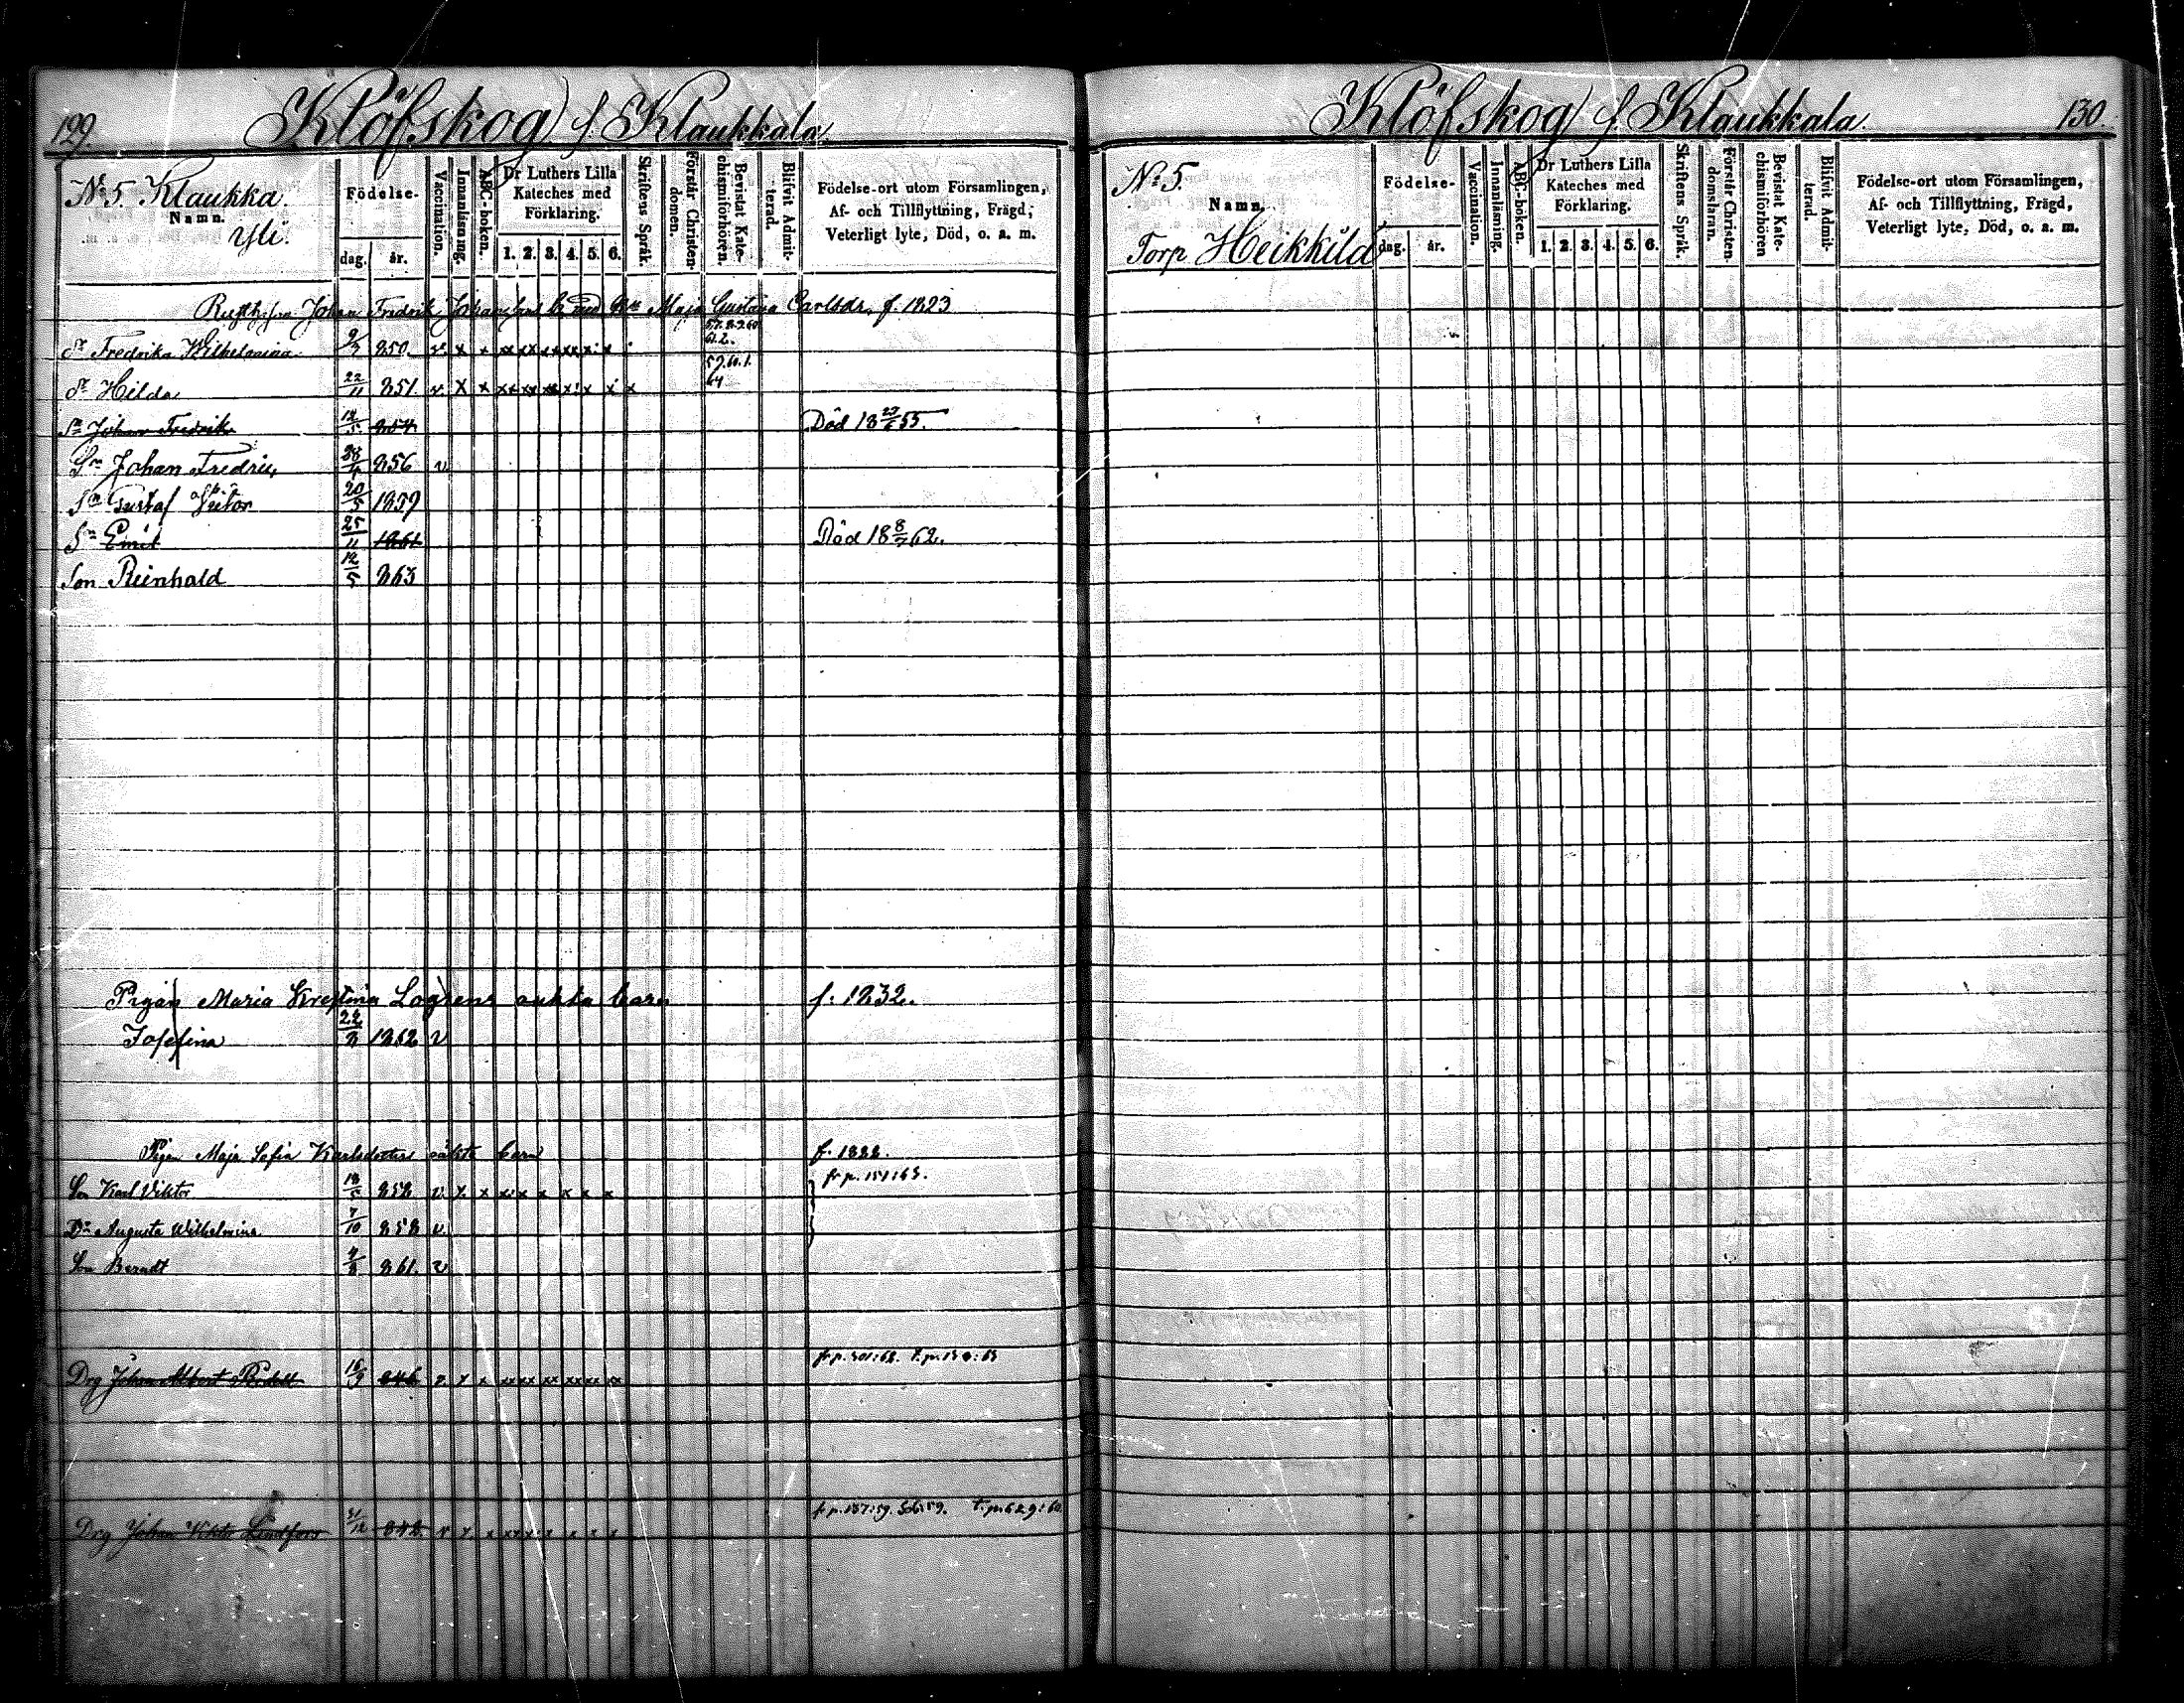 129.
Klöfskog f. Klaukkala.
No 5. Klaukka
Namn.
Yli.
Födelse-
dag. år.
Vaccination.
Innanläsning.
ABC-boken.
Dr Luthers Lilla
Kateches med
Förklaring.
1. 2. 3. 4. 5. 6.
Skriftens Språk.
Förstår Christen-
domen.
Bevistat Kate-
chismiförhören.
Blifvit Admit-
terad.
Födelse-ort utom Församlingen,
Af- och Tillflyttning, Frägd,
Veterligt lyte, Död, o. a. m.
Johan Fredrik Maja Gustava Carlsdr. f. 1823
Fredrika Wilhelmina 9/3 850. v. x x xx xx xx xx x x
Hilda 22/11 851. v. x x xx xx xx x x x x 64
Sn Johan Fredrik 12/5 854 Död 18 55.
Sn Johan Fredric 28/4 856 v
Sn Gustaf Victor 20/5 1859
Sn Emil 25/11 1861 Död 18 8/7 62.
Son Reinhald 12/5 863
Pigan Maria Krestina Logrens oäkta barn f. 1832.
Josefina 22/3 1862 v
Pigan Maja Sofia Karlsdotters oäkta barn
fr p. 151:63.
Son Karl Viktor 18/5 852 v. x x x x x x x x
Dr Augusta Wilhelmina 7/10 858 v.
Son Berndt 4/8 861. v
fr p. 301:62. t. p. 130:63
Drg Johan Albert 16/9 846 v. x x xx xx xx xx xx
fr p. 157:59. t. p. 629:60
Drg Johan Viktor Lindfors 31/12 842 v x x
130.
Klöfskog f. Klaukkala.
No 5.
Namn.
Torp Heikkilä
Födelse-
dag. år.
Vaccination.
Innanläsning.
ABC-boken.
Dr Luthers Lilla
Kateches med
Förklaring.
1. 2. 3. 4. 5. 6.
Skriftens Språk.
Förstår Christen-
domsläran.
Bevistat Kate-
chismiförhören
Blifvit Admit-
terad.
Födelse-ort utom Församlingen,
Af- och Tillflyttning, Frägd,
Veterligt lyte, Död, o. a. m.